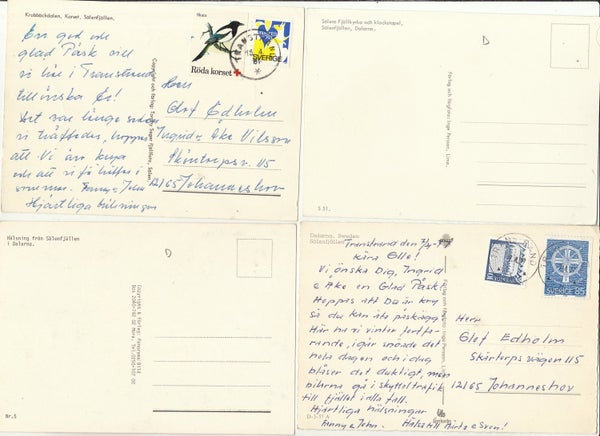 Krabbäckdalen, Korset, Sälenfjällen.
Skata
En god och
glad Påsk vill
vi här i Transtrand
tillönska Er!
Det var länge sedan
vi träffades, hoppas
att Vi äro krya
och att vi få träffas i
sommar. Fanny o John
Hjärtliga hälsningar
Röda korset
SVERIGE
TRANSTRAND
Herr
Olof Edholm
Ingrid o Åke Nilsson
Skärtorpsv. 115
12165 Johanneshov
Sälens Fjällkyrka och klockstapel,
Sälenfjällen, Dalarna.
D
Foto och förlag: Inge Persson, Lima.
S 31.
Hälsning från Sälenfjällen
i Dalarna.
D
Nr.5
Dalarna. Sweden
Sälenfjällen
Transtrand den
Kära Olle!
Vi önska Dig, Ingrid
o Åke en Glad Påsk
Hoppas att Du är kry
så Du kan äta påskägg.
Här ha vi vinter fortfa-
rande, igår snöade det
hela dagen och i dag
blåser det duktigt, men
bilarna gå i skytteltrafik
till fjället i alla fall.
Hjärtliga hälsningar
Fanny o John. Hälsa till Märta o Sven!
SVERIGE 85
Herr
Olof Edholm
Skärtorpsvägen 115
12165 Johanneshov